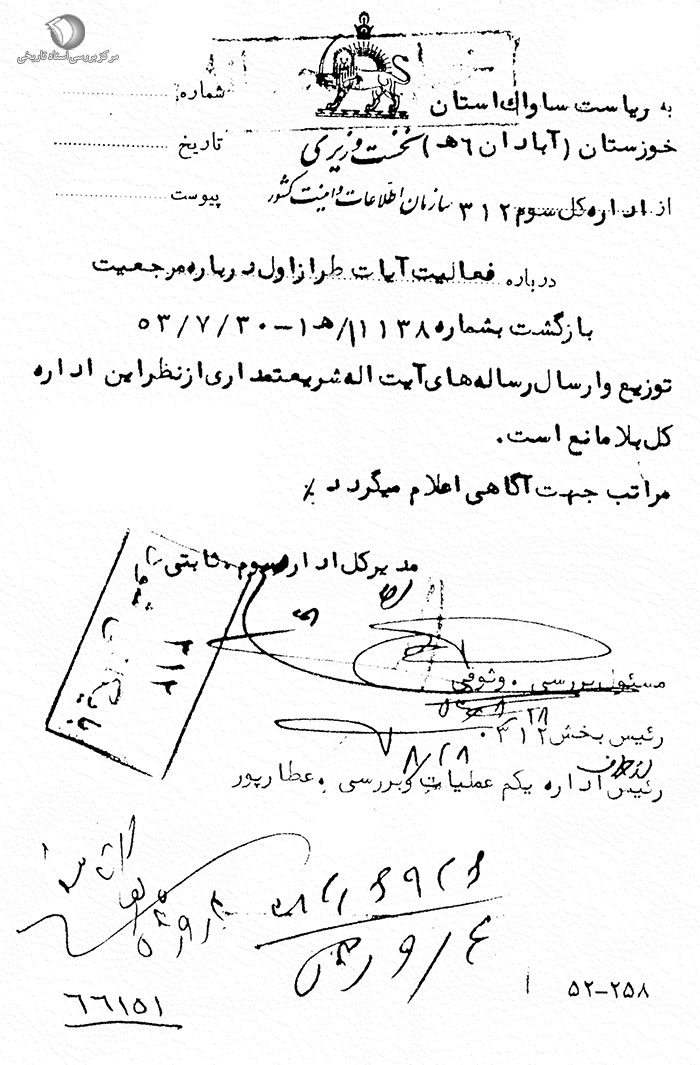 مرکز بررسی اسناد تاریخی
به ریاست ساواک استان
خوزستان (آبادان ۶ه)
نخست وزیری
سازمان اطلاعات و امنیت کشور
از اداره کل سوم ۳۱۲
شماره
تاریخ
پیوست
درباره فعالیت آیات طراز اول درباره مرجعیت
بازگشت بشماره ۱۱۱۳۸/ه۱-۵۳/۷/۳۰
توزیع و ارسال رساله‌های آیت اله شریعتمداری از نظر این اداره
کل بلامانع است.
مراتب جهت آگاهی اعلام میگردد
مدیرکل اداره سوم. ثابتی
مسئول بررسی. وثوقی
۲۸
رئیس بخش ۳۱۲.
۸/۲۸
رئیس اداره یکم عملیات و بررسی. عطارپور
۳۱۲
۵۲-۲۵۸
۶۶۱۵۱